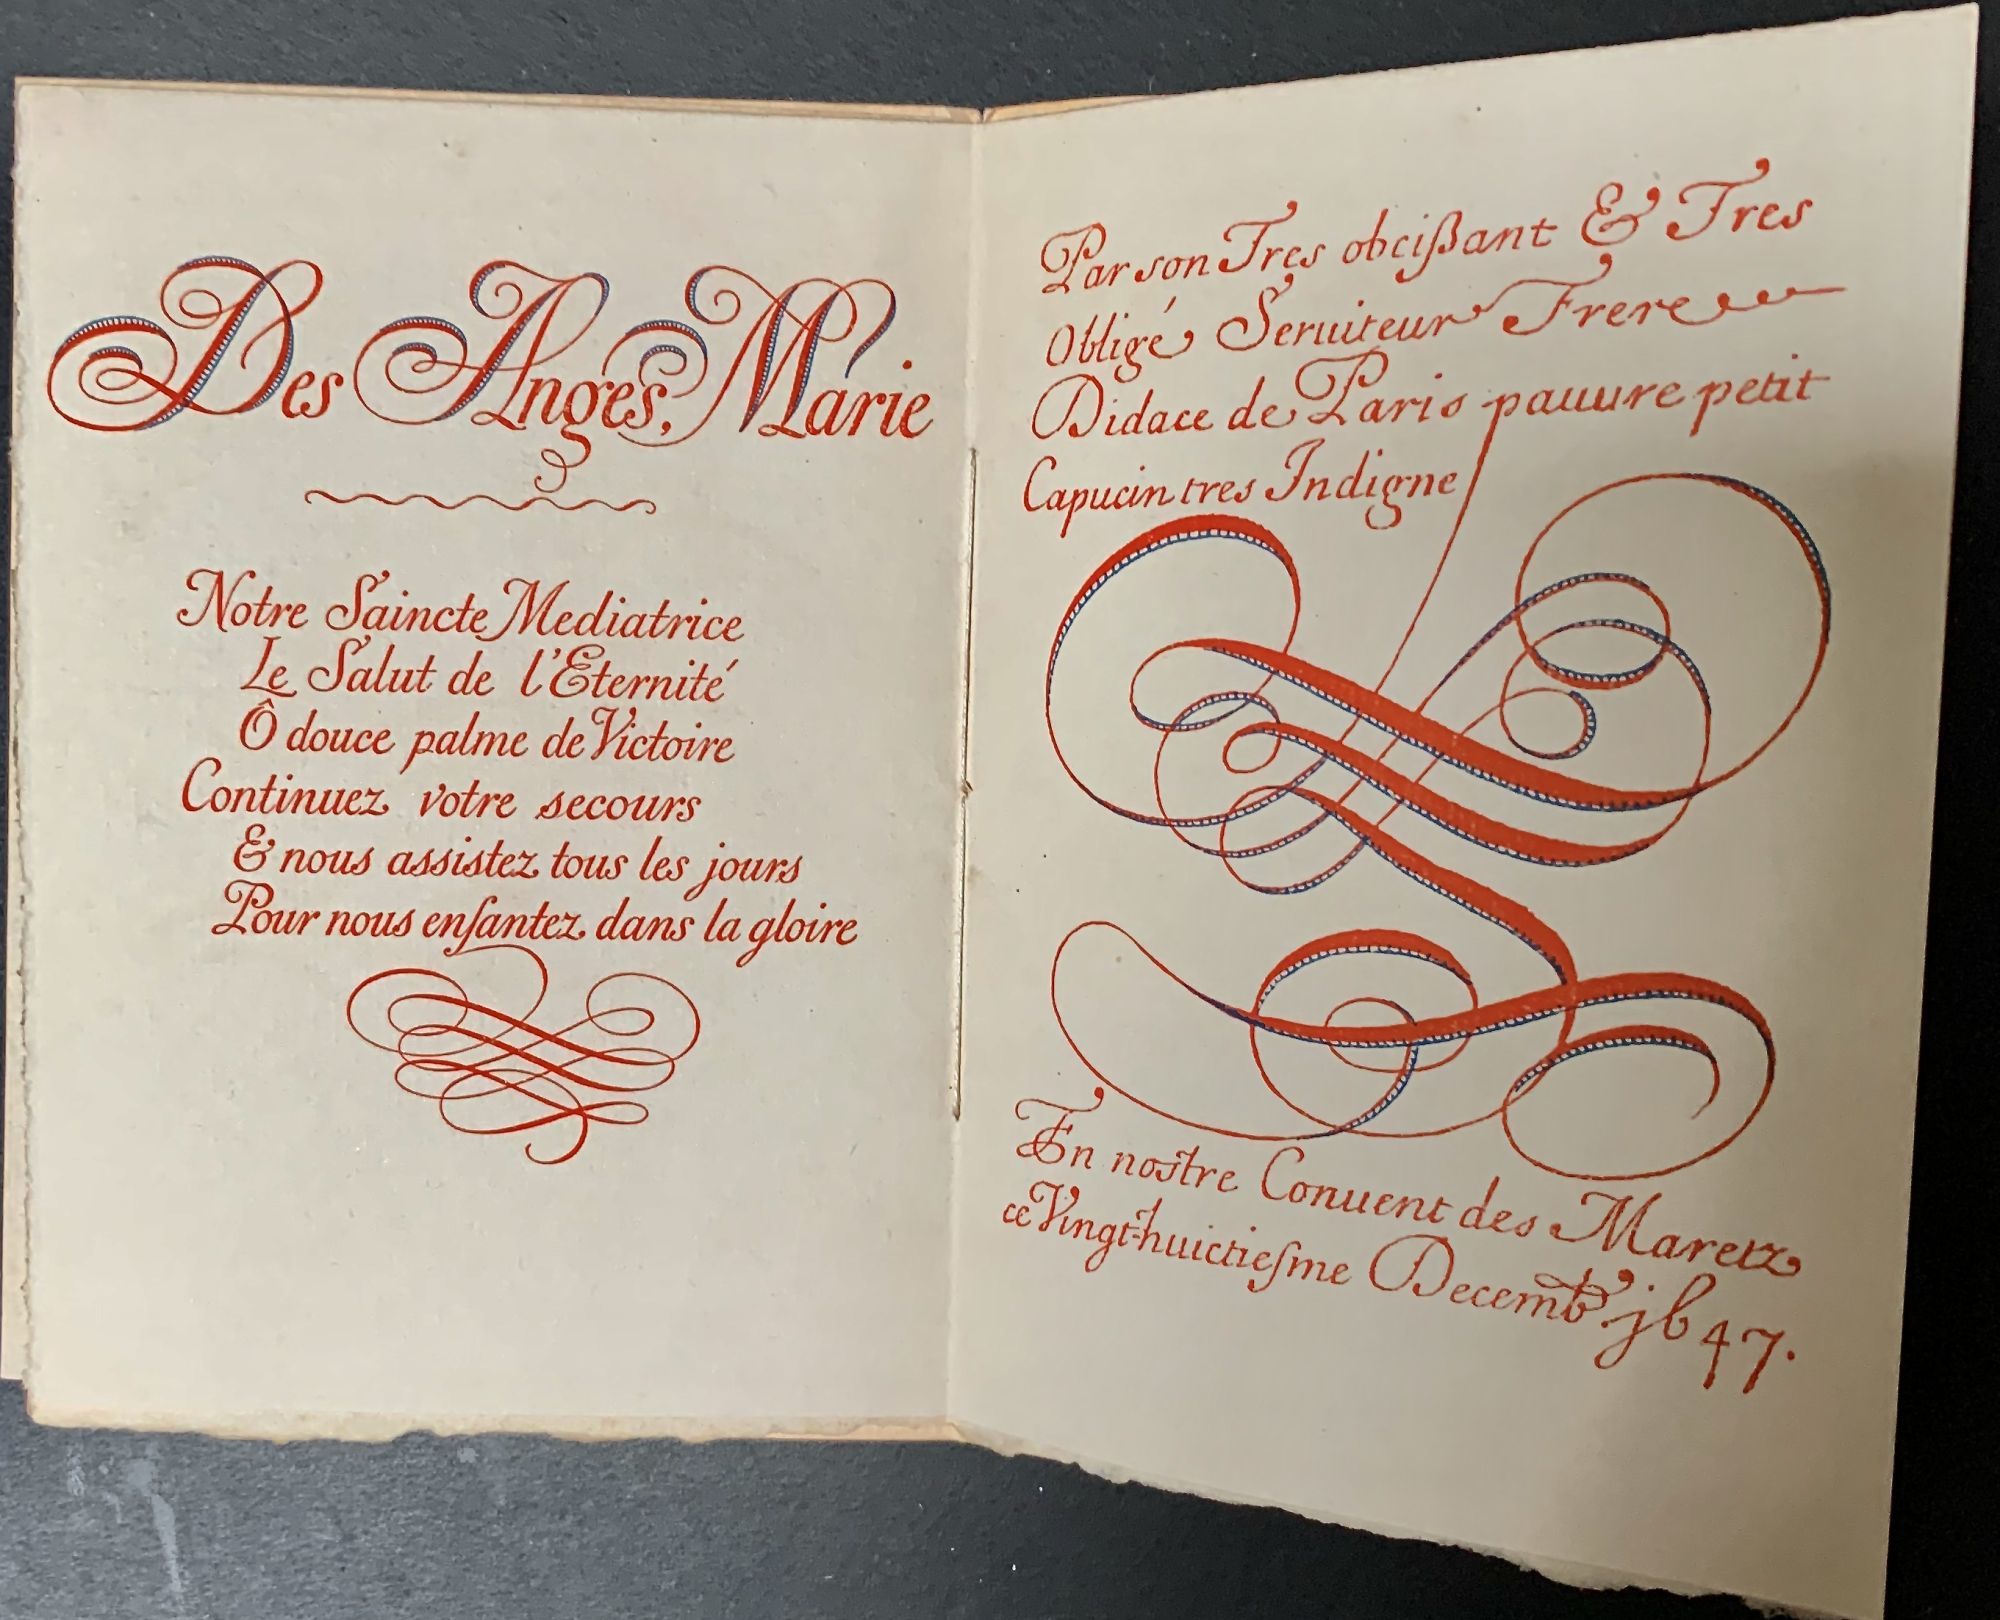 Des Anges, Marie
Notre Saincte Mediatrice
Le Salut de l'Eternité
Ô douce palme de Victoire
Continuez votre secours
& nous assistez tous les jours
Pour nous enfantez dans la gloire
Par son Tres obeißant & Tres
Obligé Seruiteur Frere
Didace de Paris pauure petit
Capucin tres Indigne
En nostre Conuent des Maretz
ce Vingt-huictieſme Decemb. jb47.